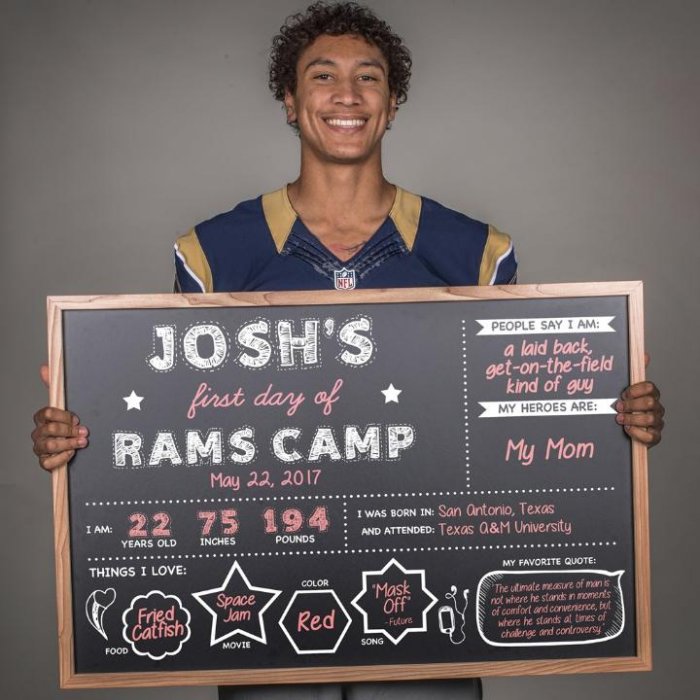 NFL
JOSH'S
first day of
RAMS CAMP
May 22, 2017
PEOPLE SAY I AM:
a laid back,
get-on-the-field
kind of guy
MY HEROES ARE:
My Mom
I AM:
22
YEARS OLD
75
INCHES
194
POUNDS
I WAS BORN IN: San Antonio, Texas
AND ATTENDED: Texas A&M University
THINGS I LOVE:
FOOD
Fried
Catfish
Space
Jam
MOVIE
COLOR
Red
"Mask
Off"
- Future
SONG
MY FAVORITE QUOTE:
"The ultimate measure of man is
not where he stands in moments
of comfort and convenience, but
where he stands at times of
challenge and controversy."